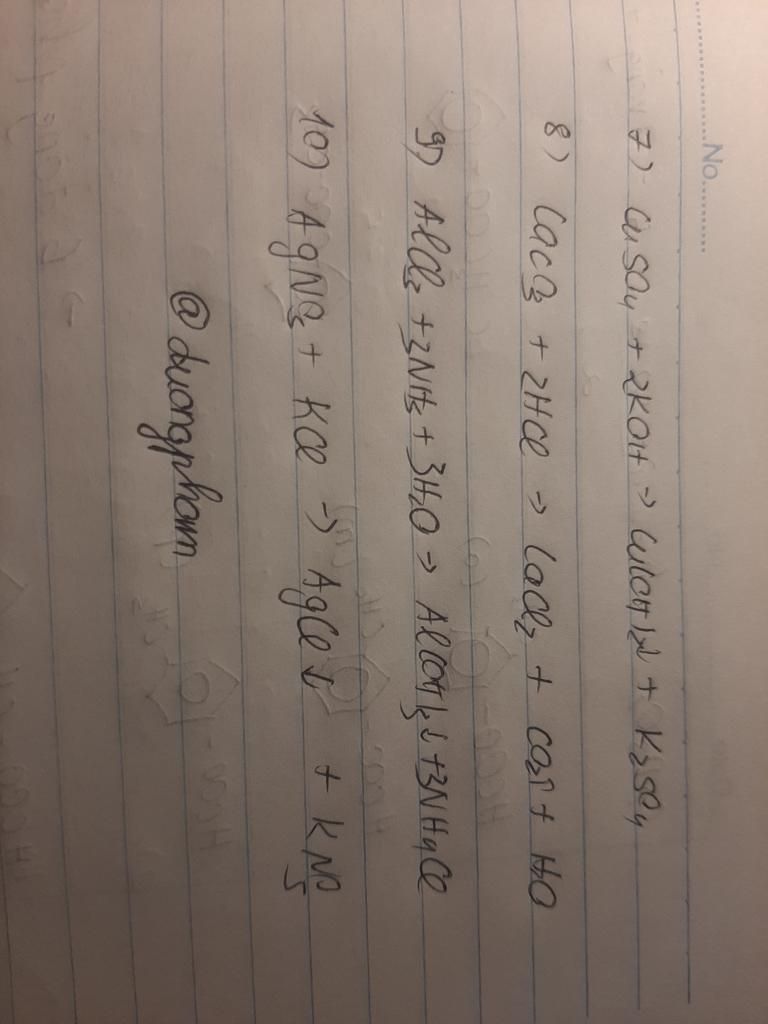 No.
7) CuSO4 + 2KOH → Cu(OH)2↓ + K2SO4
8) CaCO3 + 2HCl → CaCl2 + CO2↑ + H2O
9) AlCl3 + 3NH3 + 3H2O → Al(OH)3↓ + 3NH4Cl
10) AgNO3 + KCl → AgCl↓ + KNO3
@duongpham